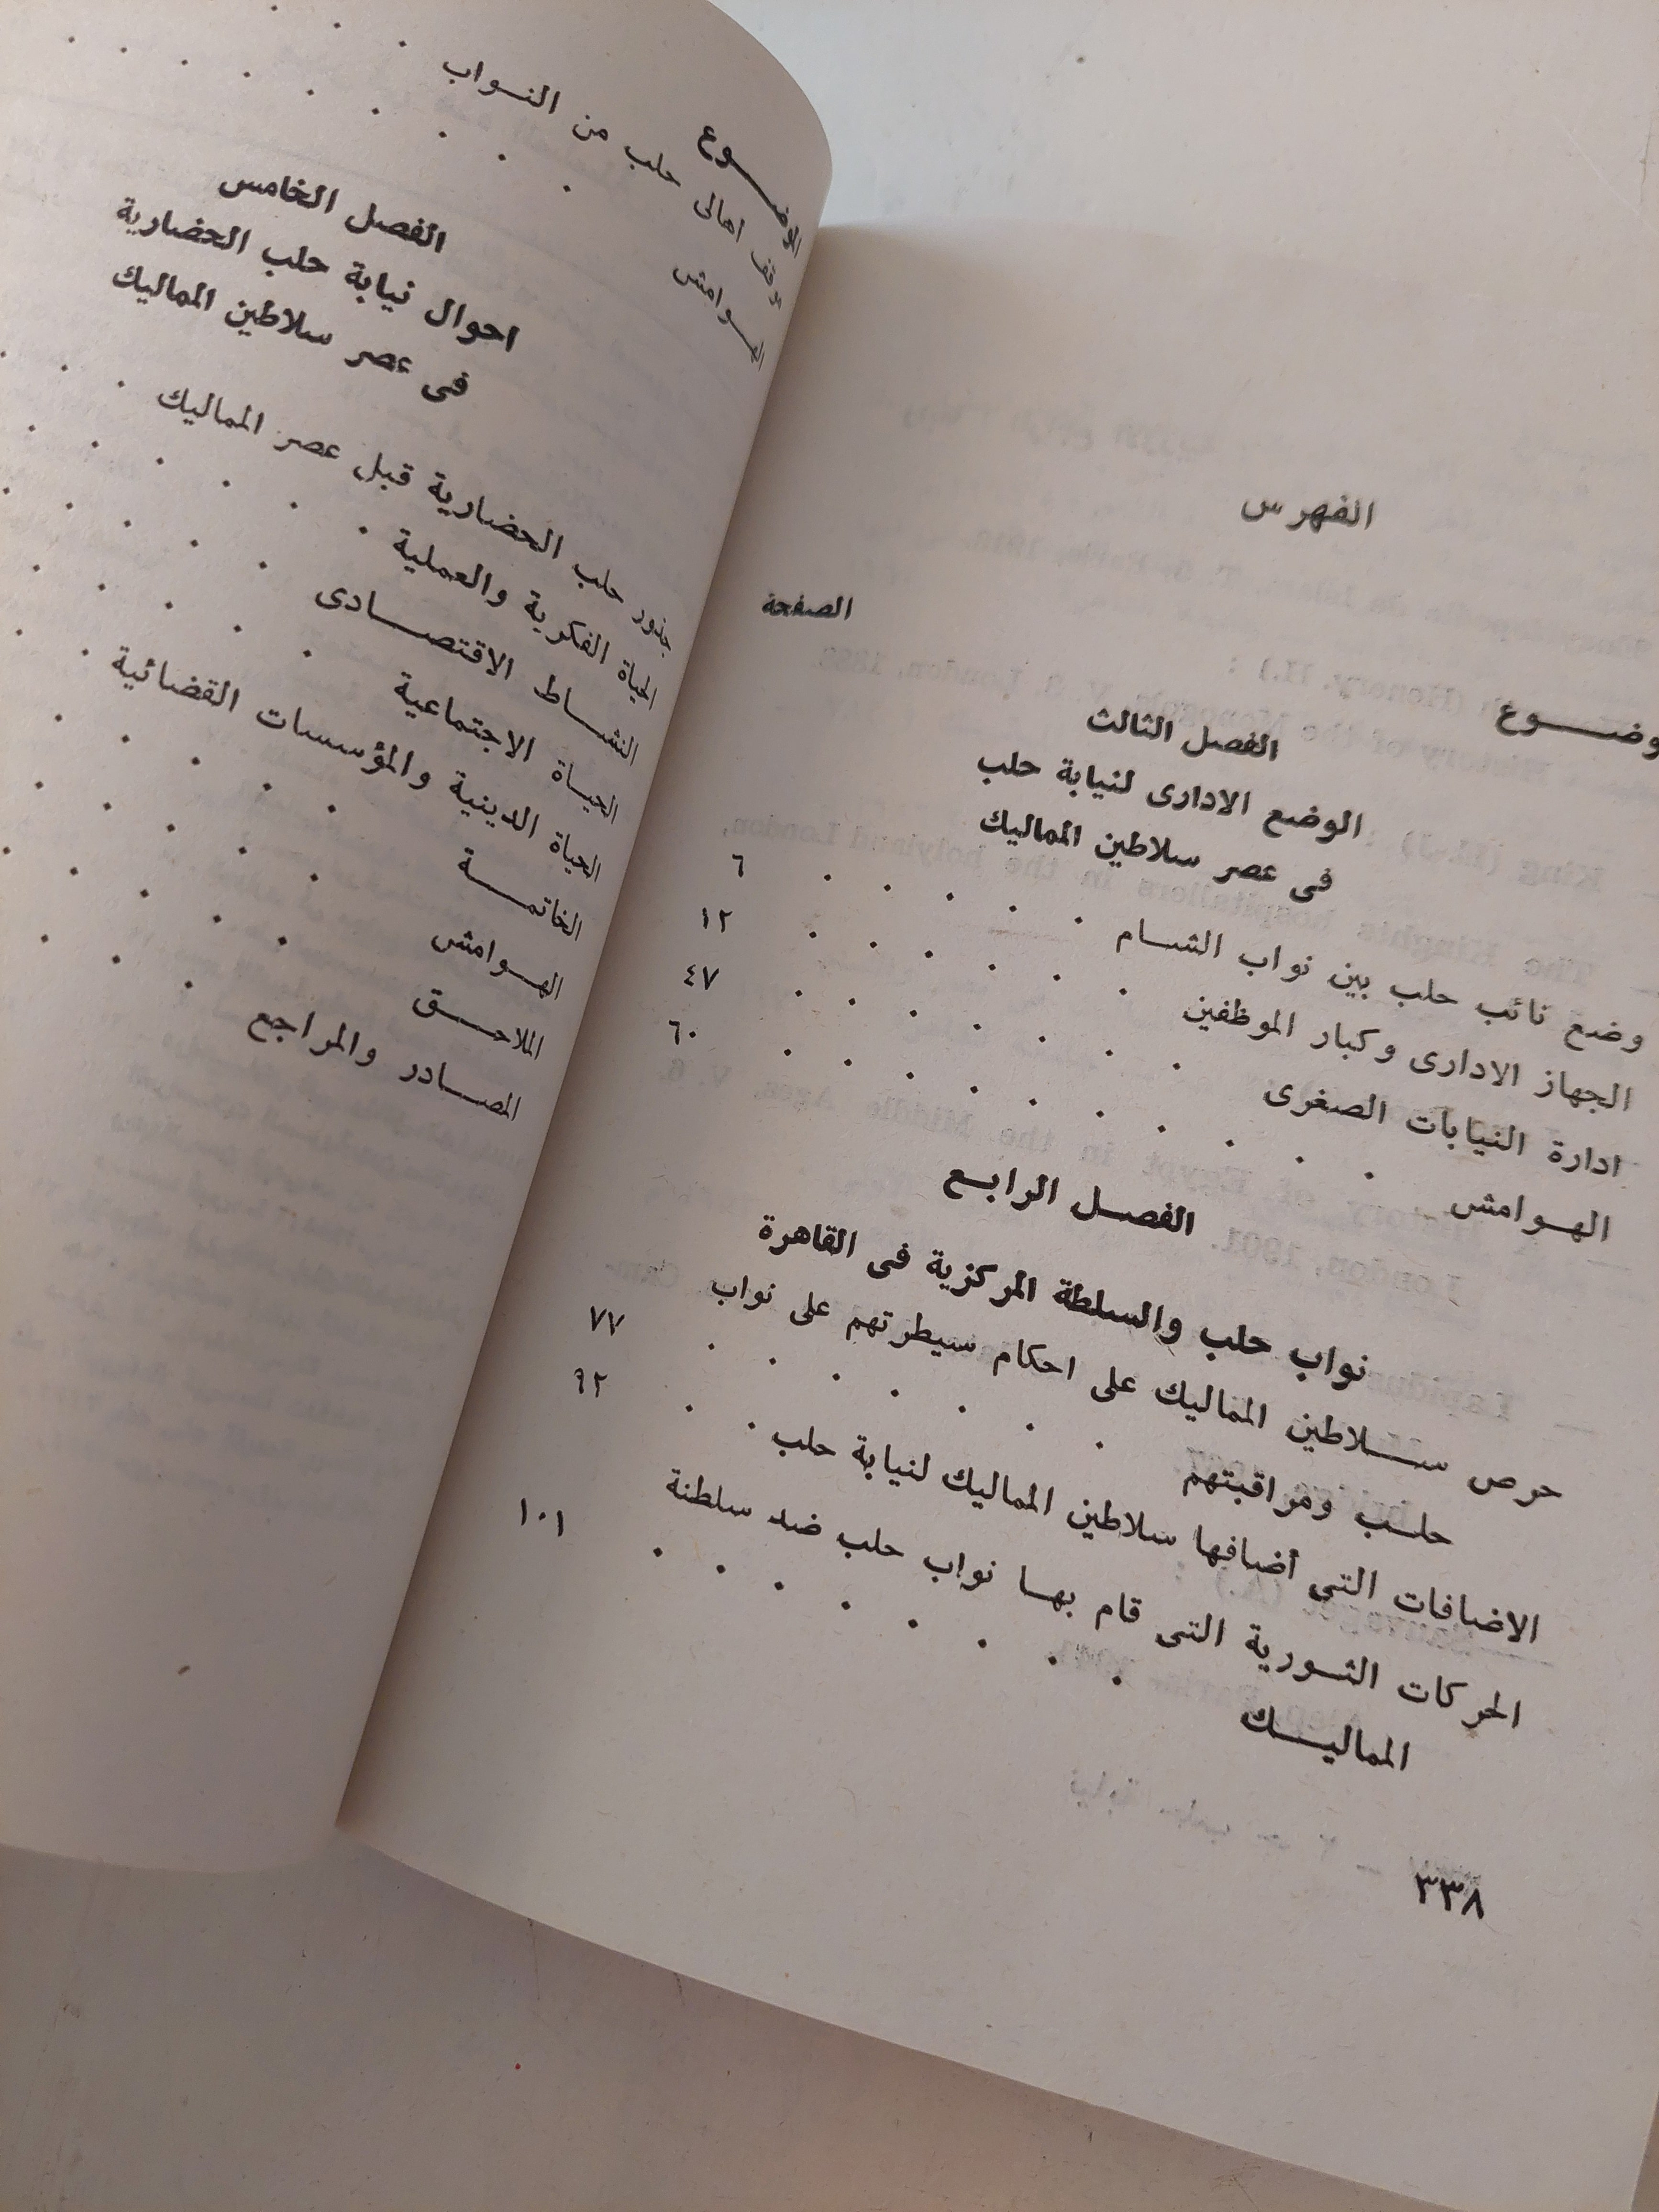 الفهرس
الصفحة
الفصل الثالث
الوضع الادارى لنيابة حلب
فى عصر سلاطين المماليك
وضع نائب حلب بين نواب الشام . . . . . ٦
الجهاز الادارى وكبار الموظفين . . . . . . ١٢
ادارة النيابات الصغرى . . . . . . . ٤٧
الهوامش . . . . . . . . . . ٦٠
الفصل الرابع
نواب حلب والسلطة المركزية فى القاهرة
حرص سلاطين المماليك على احكام سيطرتهم على نواب
حلب ومراقبتهم . . . . . . . ٧٧
الاضافات التى أضافها سلاطين المماليك لنيابة حلب . . ٩٢
الحركات الثورية التى قام بها نواب حلب ضد سلطنة
المماليك . . . . . . . . ١٠١
٣٣٨
الموضوع
موقف اهالى حلب من النواب
الهوامش
الفصل الخامس
احوال نيابة حلب الحضارية
فى عصر سلاطين المماليك
جذور حلب الحضارية قبل عصر المماليك
الحياة الفكرية والعملية
النشاط الاقتصادى
الحياة الاجتماعية
الحياة الدينية والمؤسسات القضائية
الخاتمة
الهوامش
الملاحق
المصادر والمراجع